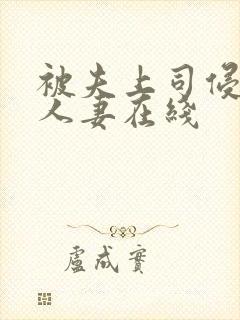 被夫上司侵
人妻在綫
盧成實